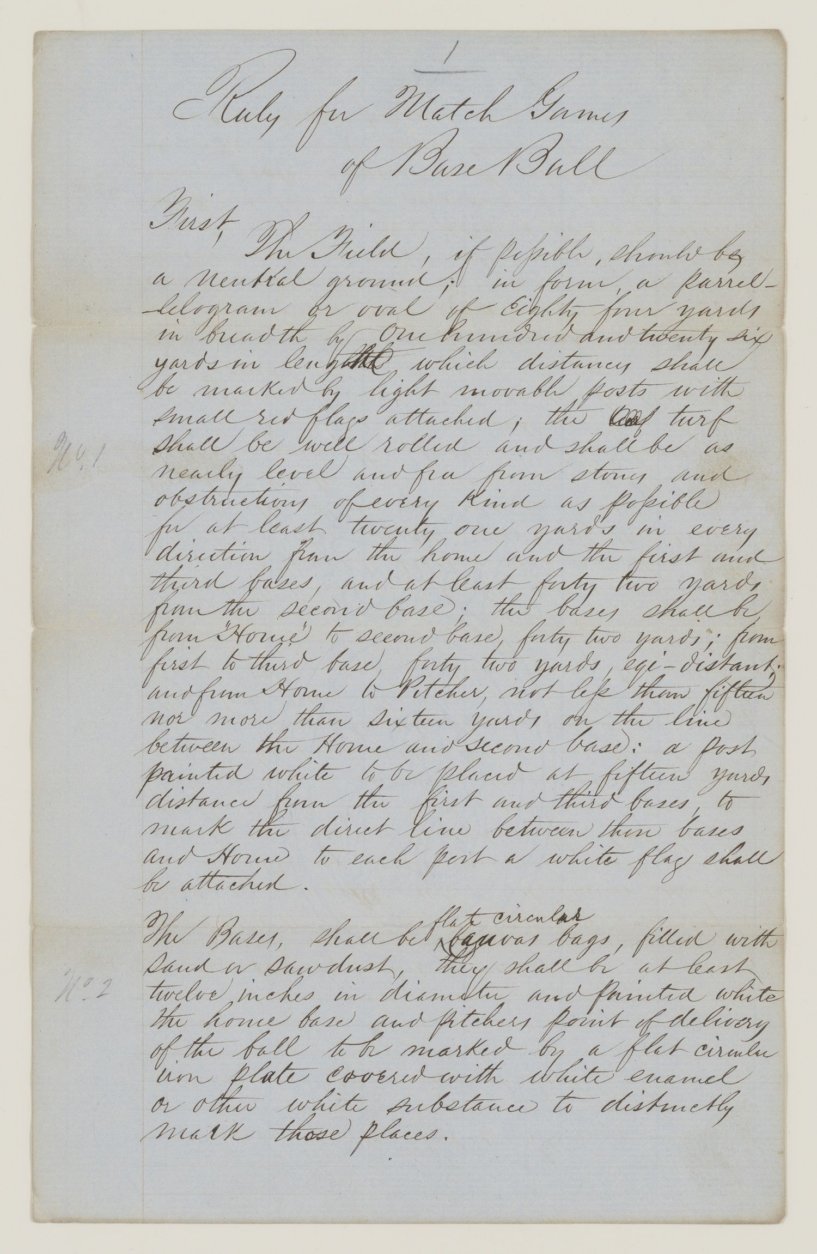 1
Rules for Match Games
of Base Ball
First,
The Field, if possible, should be
a neutral ground; in form, a parrel-
-lelogram or oval of Eighty four yards
in breadth by One hundred and twenty six
yards in length which distances shall
be marked by light movable posts with
small red flags attached; the turf
shall be well rolled and shall be as
nearly level and free from stones and
obstructions of every kind as possible
for at least twenty one yards in every
direction from the home and the first and
third bases, and at least forty two yards
from the second base; the bases shall be
from "Home" to second base, forty two yards; from
first to third base, forty two yards, eqi-distant;
and from Home to Pitcher, not less than fifteen
nor more than sixteen yards on the line
between the Home and second base: a post
painted white to be placed at fifteen yards
distance from the first and third bases, to
mark the direct line between those bases
and Home to each post a white flag shall
be attached.
No. 1
flat circular
The Bases, shall be canvas bags, filled with
sand or sawdust, they shall be at least
twelve inches in diameter and painted white
the home base and pitchers point of delivery
of the ball to be marked by a flat circular
iron plate covered with white enamel
or other white substance to distinctly
mark those places.
No. 2